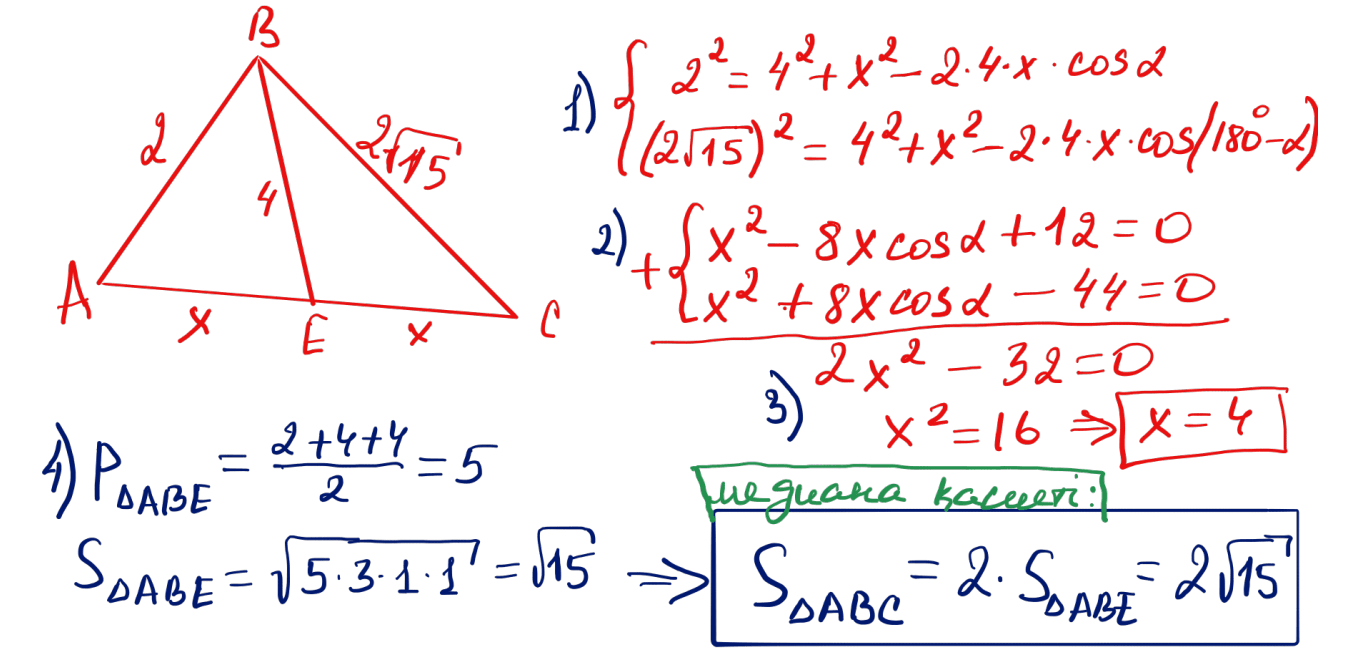 B
2
4
2√15
A
x
E
x
C
1) { 2² = 4² + x² - 2·4·x · cosα
(2√15)² = 4² + x² - 2·4·x·cos(180° - α)
2) + { x² - 8xcosα + 12 = 0
x² + 8xcosα - 44 = 0
2x² - 32 = 0
3) x² = 16 ⇒ x = 4
4) P△ABE = (2+4+4)/2 = 5
S△ABE = √(5·3·1·1) = √15 ⇒
медиана қасиеті:
S△ABC = 2·S△ABE = 2√15